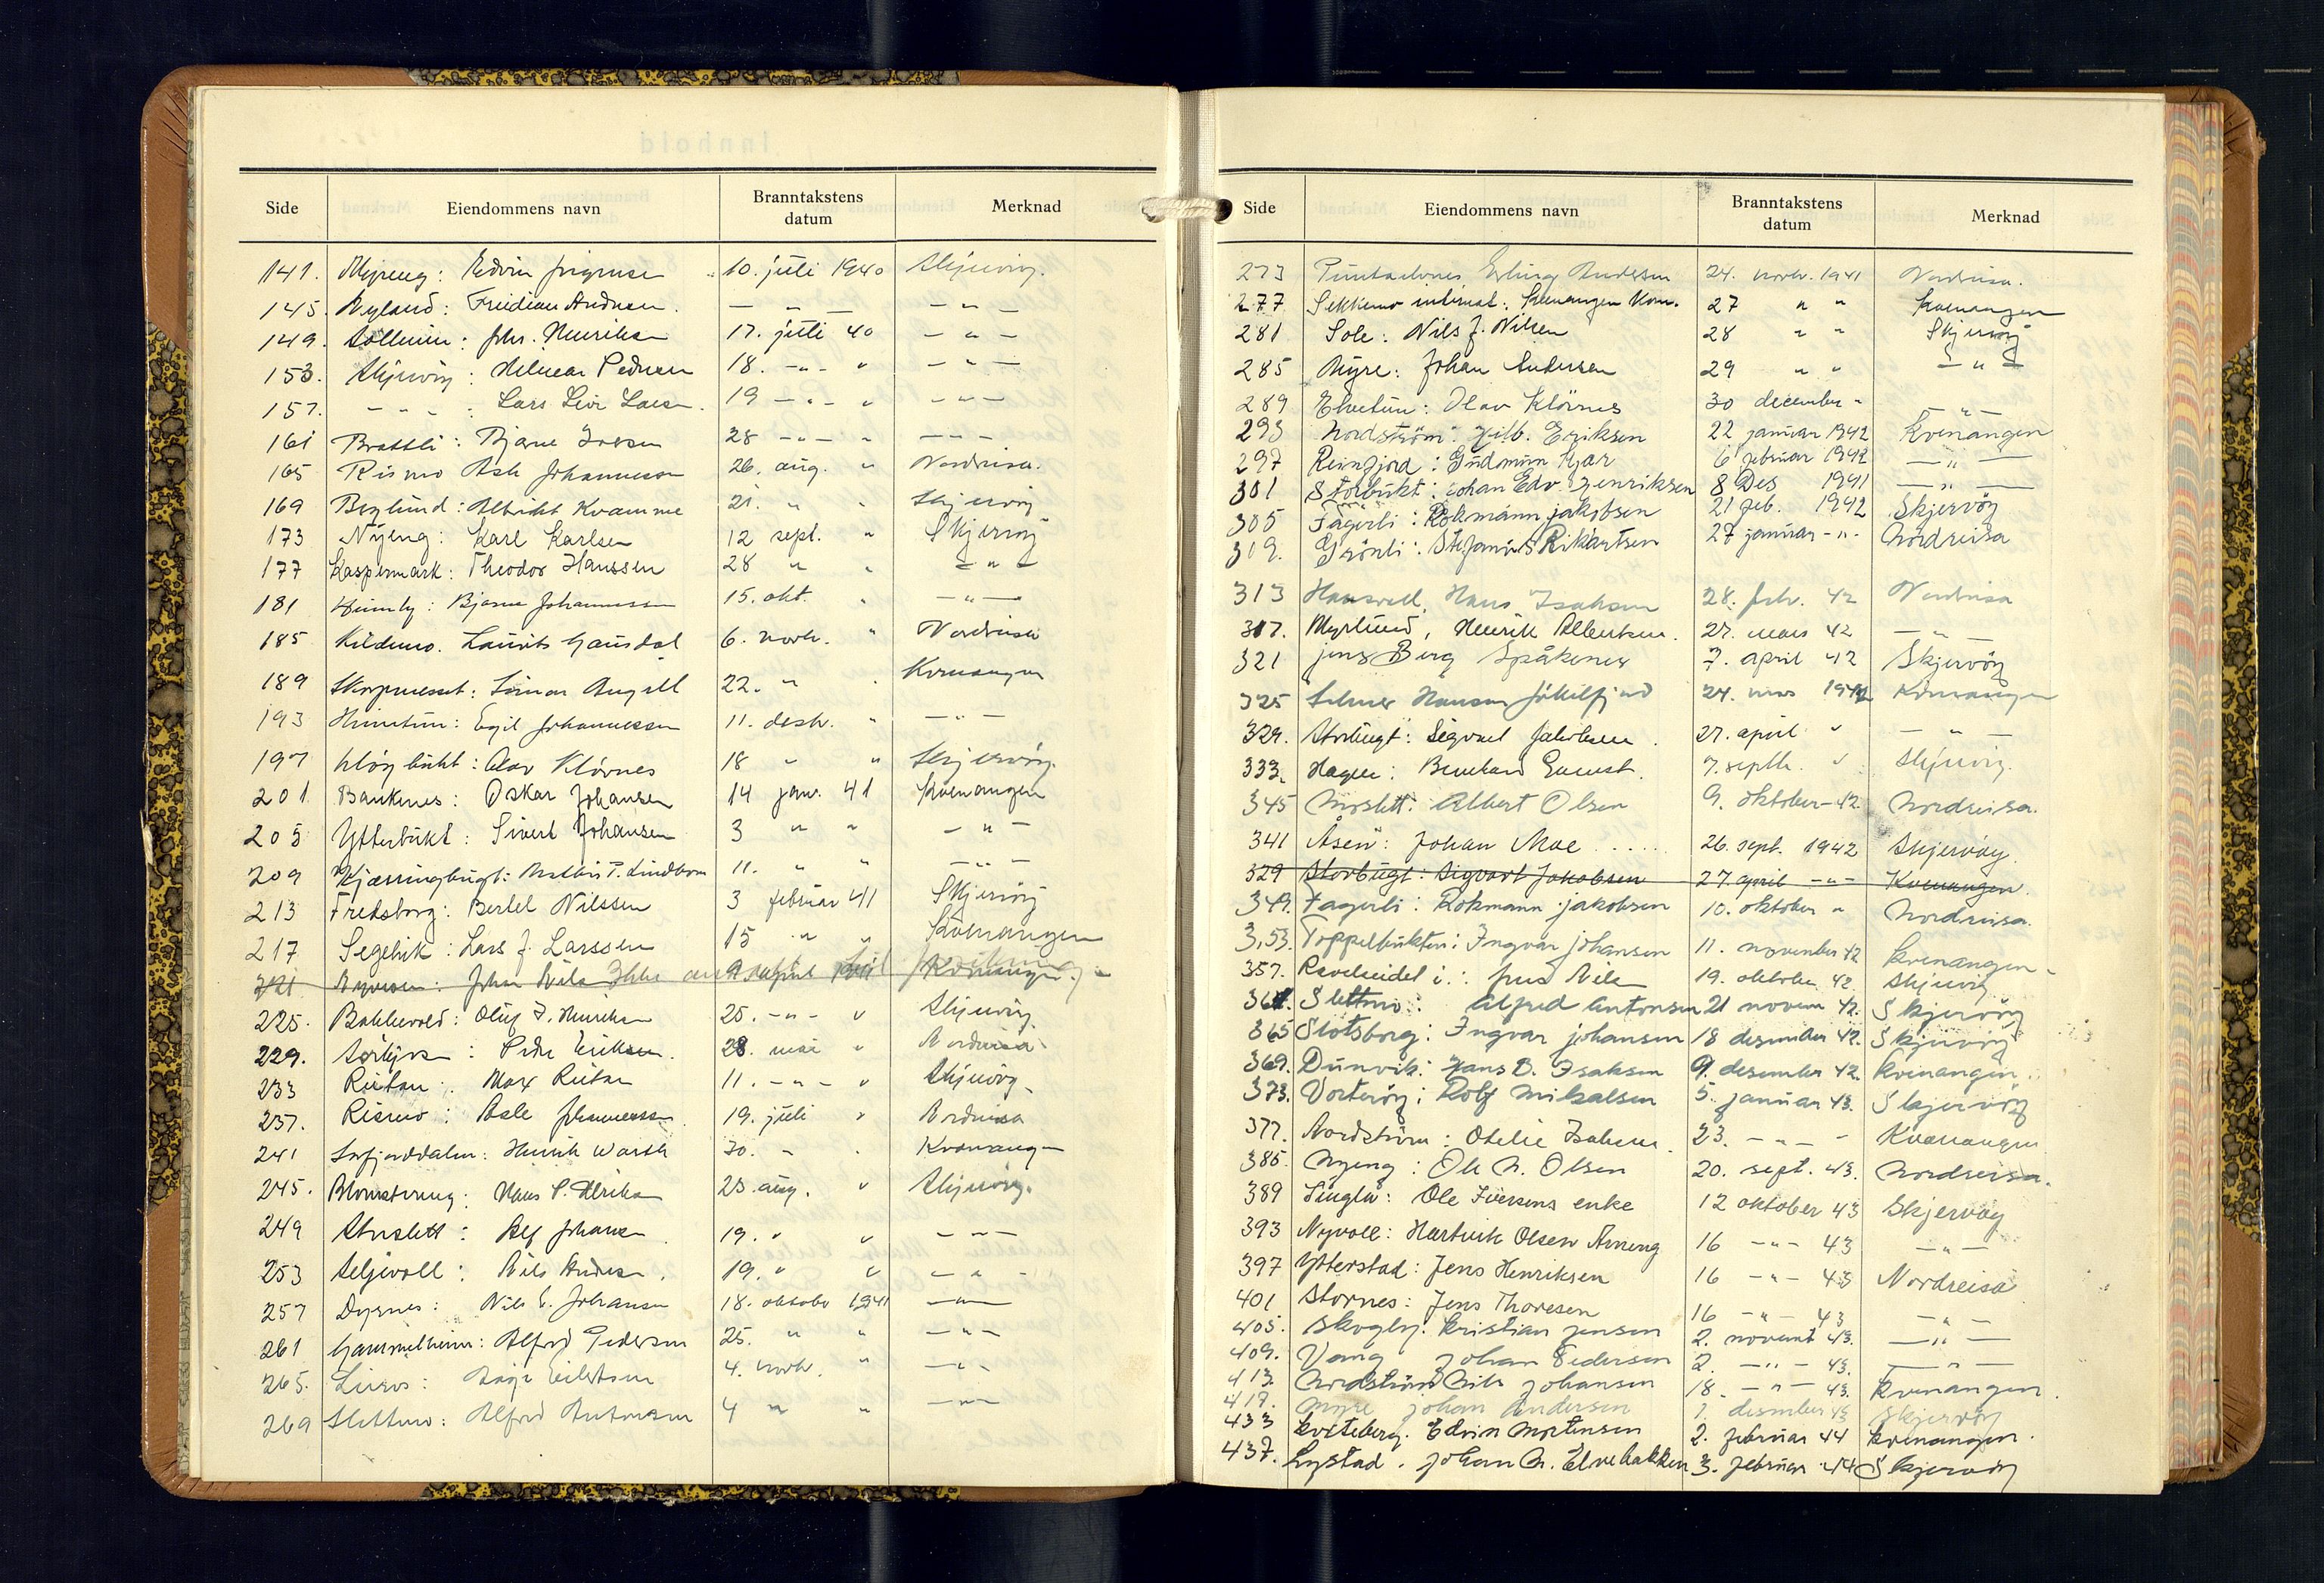 Innhold
Side Eiendommens navn Branntakstens datum Merknad
141. Edvin 10. juli 1940 Skjervöy.
145. Nyland: Fridian Andersen. — " — — " —
149. Solheim: Johs. Henriksen 17. juli 40 — " —
153. Skjervöy: Helmar Pedersen 18. — " — " — " —
157. — " — : Lars Levi Larsen. 19 — " — " — " —
161 Brattli: Bjarne 28 — " — " — " —
165 Rismo Asle Johannessen 26. aug. " Nordreisa.
169 Berglund: Albricht Kvamme 21. " " Skjervöy
173 Nyeng: Karl Karlsen 12 sept. " Skjervöy
177 Kaspermark: Theodor Hanssen 28 " " — " —
181 Heimly: Bjarne Johannessen 15. okt. " — " —
185 Kildemo. Laurits Gausdal 6. novb. " Nordreisa
189 : Angell 22. " " Kvænangen
193 Heimetun: Egil Johannessen 11. desb. " — " —
197 Klöybukt: Olav Klövnes 18 " " Skjervöy.
201 Bankenes: Oskar Johansen 14 jan. 41 Kvenangen
205 Ytterbukt: Sivert Johansen 3 " " — " —
209 Kjærringbugt: P. Lindbom 11. " " — " —
213 Fredsborg: Bertel Nilssen 3 februar 41 Skjervöy
217 Segelvik: Lars J. Larssen 15 " " Kvenangen
221 Johan Kvenangen.
225. Bakkevold: Oluf J. Henriksen 25. — " — " Skjervöy.
229. Peder Eriksen. 28. mai " Nordreisa
233 Reitan: Marx Reitan 11. — " — " Skjervöy.
237. Rismo: Asle Johannessen. 19. juli " Nordreisa
241 Sørfjorddalen: Henrik Warth 30. " " Kvænangen
245. Blomstereng: Hans P. Ulriksen 25. aug. " Skjervöy.
249 Storslett: Alf Johansen. 19. " " — " —
253 Seljevoll: Nils Andersen. 19. " " — " —
257 Dyrnes: Nils E. Johansen 18. oktober 1941 — " —
261 Gammelheim: Alfred Pedersen 25. " " — " —
265. : Eilertsen 4. novb. " — " —
269 Slettmo: Alfred Antonsen 4 " " — " —
Side Eiendommens navn Branntakstens datum Merknad
273 Erling Andersen 24. novb. 1941 Nordreisa.
277 Sekkemo internat: Kvenangen Kom. 27 " " Kvenangen
281 Sole: Nils J. Nilsen 28 " " Skjervöy
285 Myre: Johan Andersen 29 " " — " —
289 Elvetun: Olav Klövnes 30 december " — " —
293 Nordström: Hilb. Eriksen 22 januar 1942 Kvenangen
297 Reinfjord: Gudmunn Kjær 6 februar 1942 — " —
301 Storbukt: Johan Edv. Henriksen 8 Des 1941 — " —
305 Fagerli: Rokmann Jakobsen 21 feb. 1942 Skjervöy
319. Grönli: Stefanus Rikartsen 27 januar — " — Nordreisa
313 Hansvoll, Hans Isaksen 28. febr. 42 Nordreisa
317. Myrlund, Henrik Albertsen. 27. mars 42 — " —
321 Jens Berg Spåkenes 7. april 42 Skjervöy
325 Selmer Hansen Jökelfjord 24. mars 1942 Kvænangen
329. Storbugt: Sigvart Jakobsen. 27. april " — " —
333. Hagen: Bernhard 7. septb. " Skjervöy.
345 Moslett: Albert Olsen 9. oktober – 42 Nordreisa.
341 Åsen: Johan Moe ..... 26. sept. 1942 Skjervöy.
329 Storbugt: Sigvart Jakobsen 27. april — " — Kvenangen.
349. Fagerli: Rokmann Jakobsen 10. oktober " Nordreisa.
353. Toppelbukten: Ingvar Johansen 11. november 42 Kvenangen.
357. Ravelseidet i.: Jens Nilsen 19. oktober 42. Skjervöy
361. Slettmo: Alfred Antonsen 21 novem 42. Skjervöy
365 Slotsborg: Ingvar Johansen 18 desember 42. Skjervöy
369. Dunvik: Hans B. Isaksen 9. desember 42. Kvenangen.
373. Vorteröy: Rolf Mikalsen 5. januar 43. Skjervöy
377. Nordström: Otelie Isaksen. 23. — " — " Kvænangen
385. Nyeng: Ole N. Olsen 20. sept. 43. Nordreisa.
389 Singla: Ole Iversens enke 12 oktober 43 Skjervöy
393 Nyvoll: Hartvik Olsen Arneng 16 — " — 43 — " —
397 Ytterstad: Jens Henriksen 16 — " — 43 Nordreisa
401 Stornes: Jens Thoresen 16 — " — 43 — " —
405. Skogly: Kristian Jensen 2. novemt 43. — " —
409. Vang Johan Pedersen 2. — " — 43. — " —
413. Nordström Nils Johansen 18. — " — 43. Kvenangen.
417. Myre Johan Andersen 1. desember 43 Skjervöy
433 Kveteberg. Edvin Mortensen 2. februar 44 Kvenangen.
437. Lystad. Johan N. Elvebakken 3. februar 44 Skjervöy